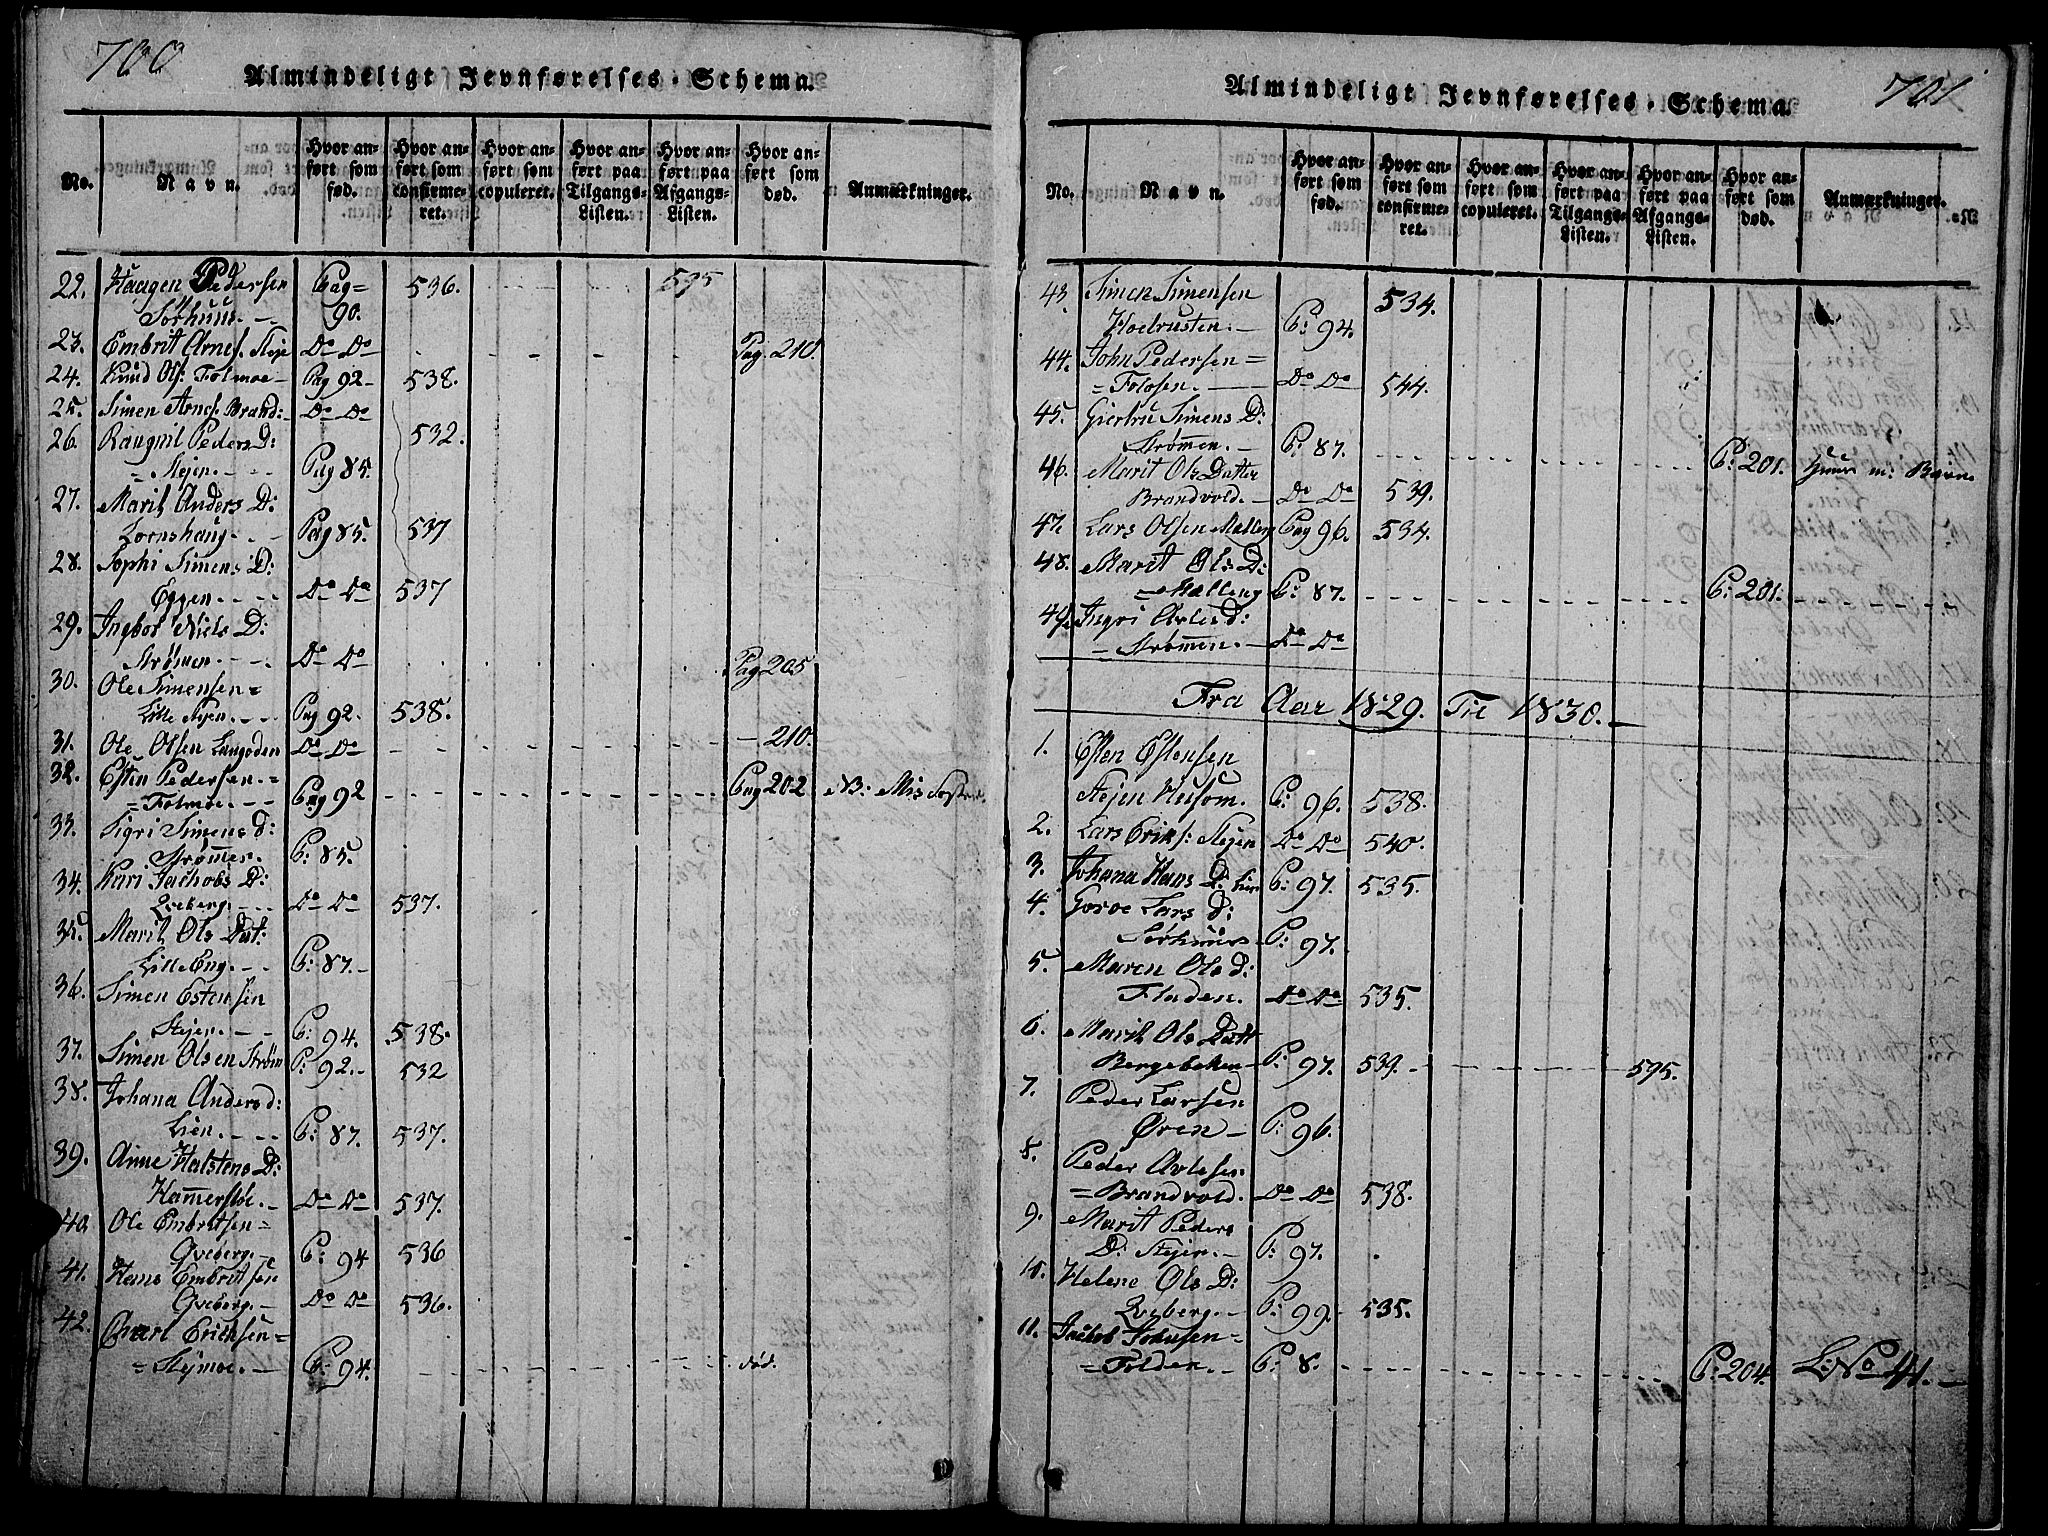 700
Almindeligt Jevnførelses-Schema.
No. Navn. Hvor anført som fød. Hvor anført som confirmeret. Hvor anført som copuleret. Hvor anført paa Tilgangs-Listen. Hvor anført paa Afgangs-Listen. Hvor anført som død. Anmærkninger.
22. Haagen Pedersen Pag= 536. 595
Sørhuus. 90.
23. Embrit Arnes. Steje Do Do Pag. 210.
24. Knud Ols: Folmoe Pag 92 538.
25. Simen Arnes. Brand: Do Do
26. Rangnil Peders D: 532.
=Stejen. Pag 85.
27. Marit Anders D:
Lornshaug. Pag 85. 537
28. Sophi Simens D:
Eggen. Do Do 537
29. Ingbor Niels D:
Strømen. Do Do Pag 205
30. Ole Simensen=
Lille Stejen. Pag 92. 538.
31. Ole Olsen Langoden Do Do 210.
32. Esten Pedersen.=
=Folmoe. Pag 92 Pag 202 NB:
33. Sigri Simens d:
Strømen. P: 85.
34. Kari Jachobs D:
Qveberg. Do Do 537.
35. Marit Ols Dat:
Lille Eng. P: 87.
36. Simen Estensen
Stejen. P: 94. 538.
37. Simen Olsen Strøm P: 92. 532
38. Johana Anders d:
Lien. P: 87. 537.
39. Anne Halstens D:
Hamerstoe. Do Do 537.
40. Ole Embretsen=
Qveberg. P: 94 536
41. Hans Embritsen
Qveberg. Do Do 536.
42. Charl Erichsen=
=Stejmoe. P: 94. død.
701
Almindeligt Jevnførelses-Schema.
No. Navn. Hvor anført som fød. Hvor anført som confirmeret. Hvor anført som copuleret. Hvor anført paa Tilgangs-Listen. Hvor anført paa Afgangs-Listen. Hvor anført som død. Anmærkninger.
43. Simen Simensen 534.
Hoelrusten. P: 94.
44. John Pedersen=
=Folosen. Do Do 544.
45. Giertru Simens D:
Strømen. P: 87. P: 201.
46. Marit Ols Datter
Brandvold. Do Do 539.
47. Lars Olsen Malleng Pag 96. 534.
48. Marit Ols D:
=Malleng P: 87. P: 201.
49. Ingri Avles d:
=Strømen. Do Do
Fra Aar 1829. Til 1830.
1. Esten Estensen
Stejen Husom. P: 96. 538.
2. Lars Eriks: Stejen Do Do 540.
3. Johana Hans D: Lien P: 97. 535.
4. Goroe Lars d:
Sørhuus P: 97.
5. Maren Ols d:
Fladen. Do Do 535.
6. Marit Ols Datt
Bergebaken P: 97. 539. 595.
7. Peder Larsen
Øren P: 96.
8. Peder Avlesen
=Brandvold. Do Do 538.
9. Marit Peders
D: Stejen. P: 97.
10. Helene Ols D:
Qveberg. P: 99. 535.
11. Jachob Johnsen=
=Folden. P: 8. P: 204. L: No 41.